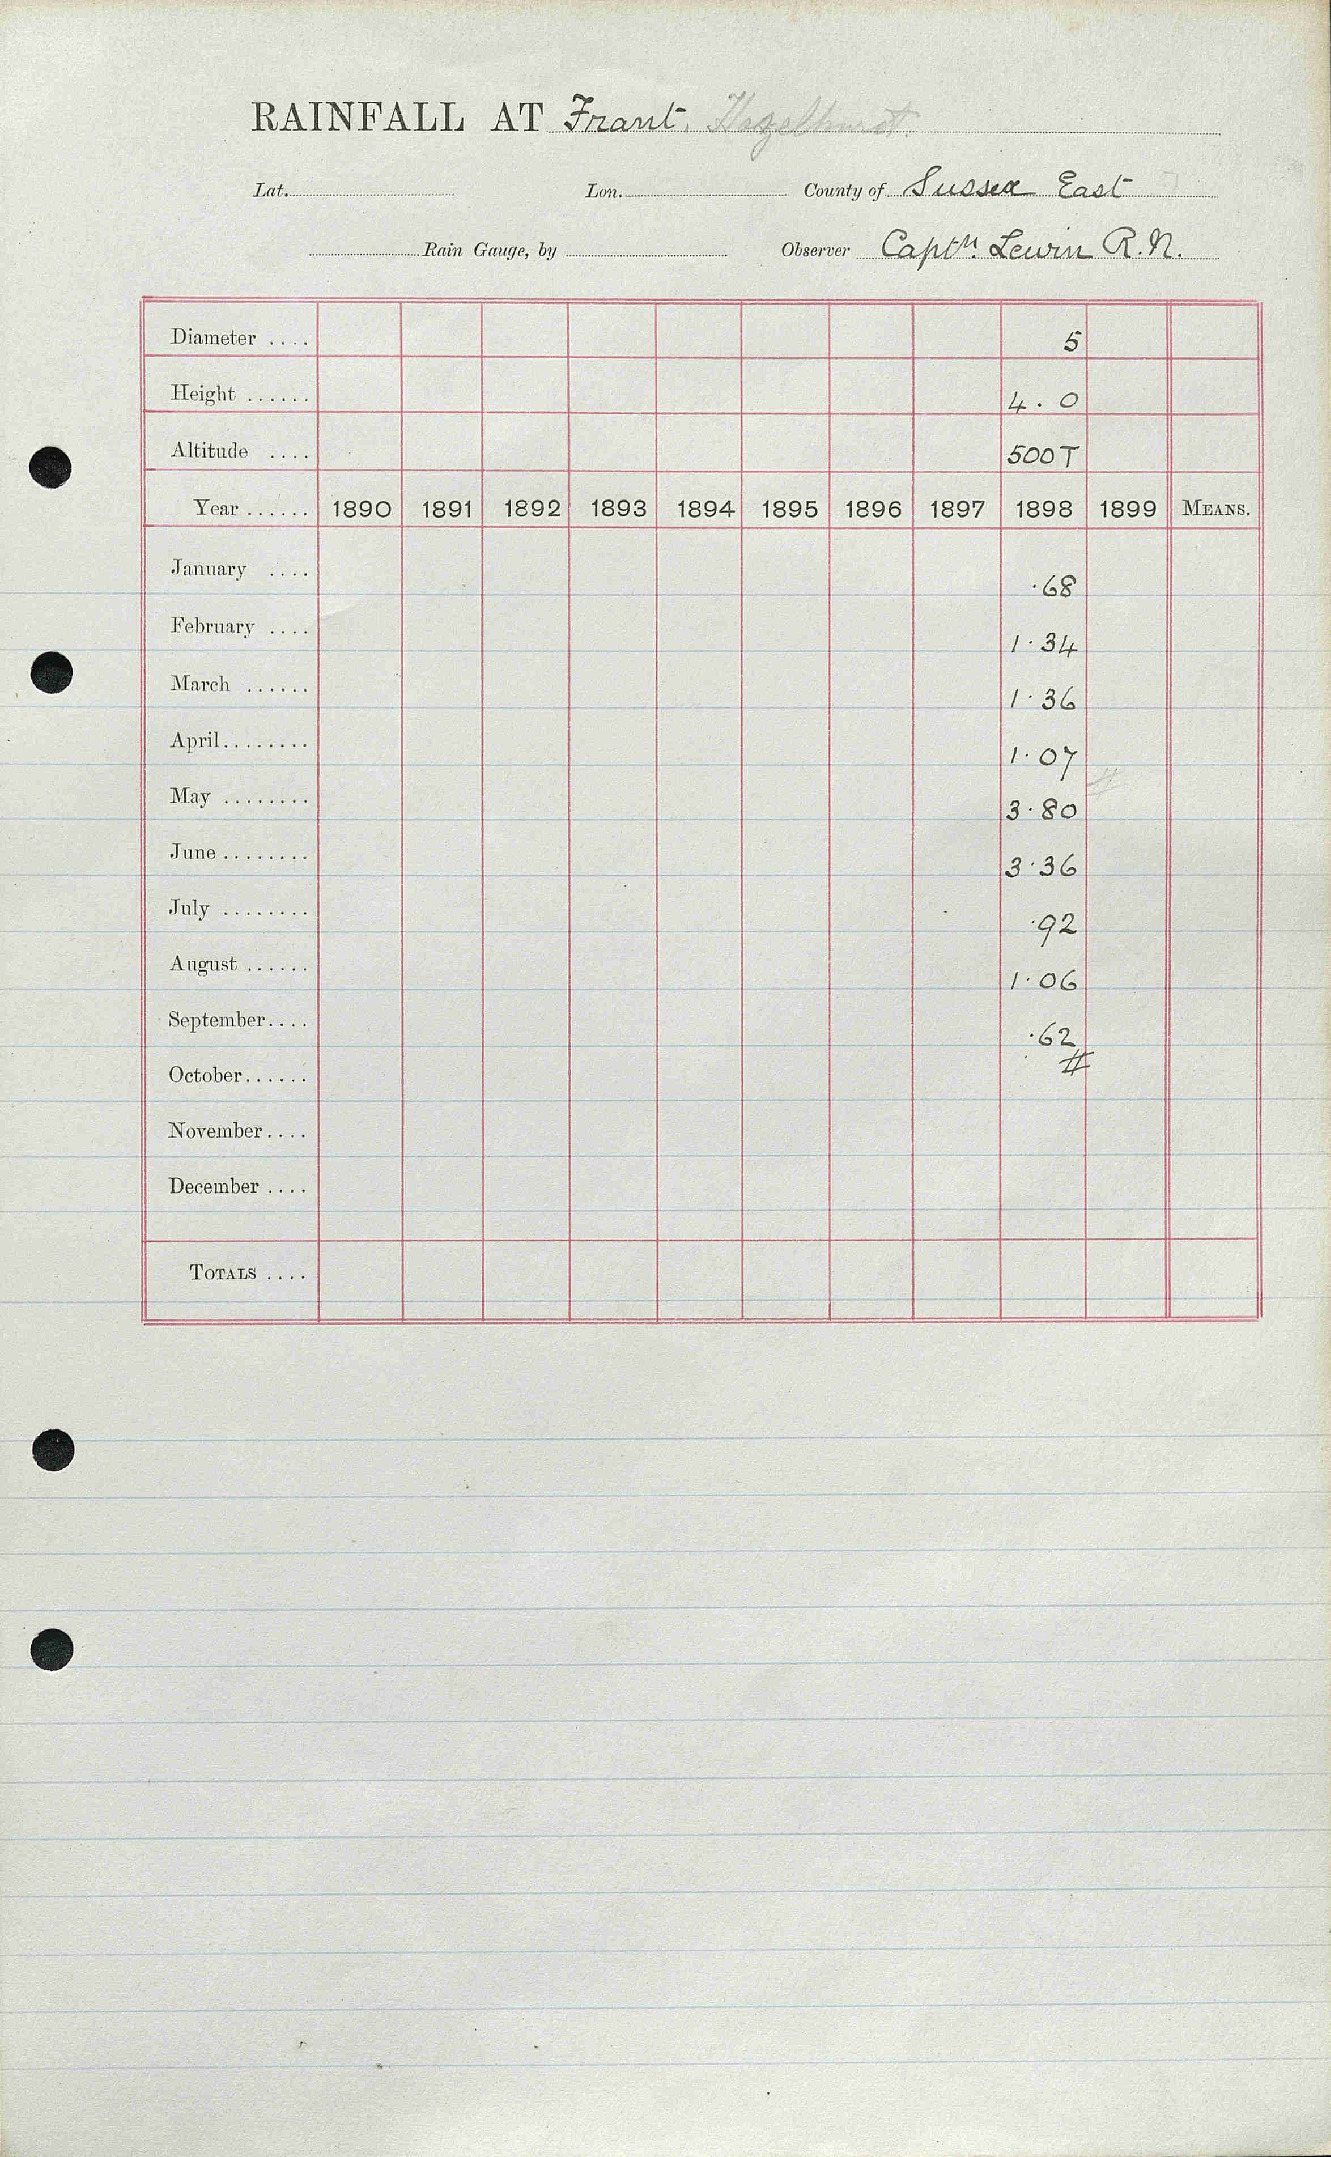 RAINFALL AT Frant. Hazelhurst.
Lat. Lon. County of Sussex East
Rain Gauge, by Observer Captn. Lewin R.N.
Diameter .... 5
Height ...... 4.0
Altitude .... 500T
Year ...... 1890 1891 1892 1893 1894 1895 1896 1897 1898 1899 MEANS.
January .... ·68
February .... 1·34
March ...... 1·36
April........ 1·07
May ........ 3·80
June ........ 3·36
July ........ ·92
August ...... 1·06
September.... ·62
October......
November....
December ....
TOTALS ....